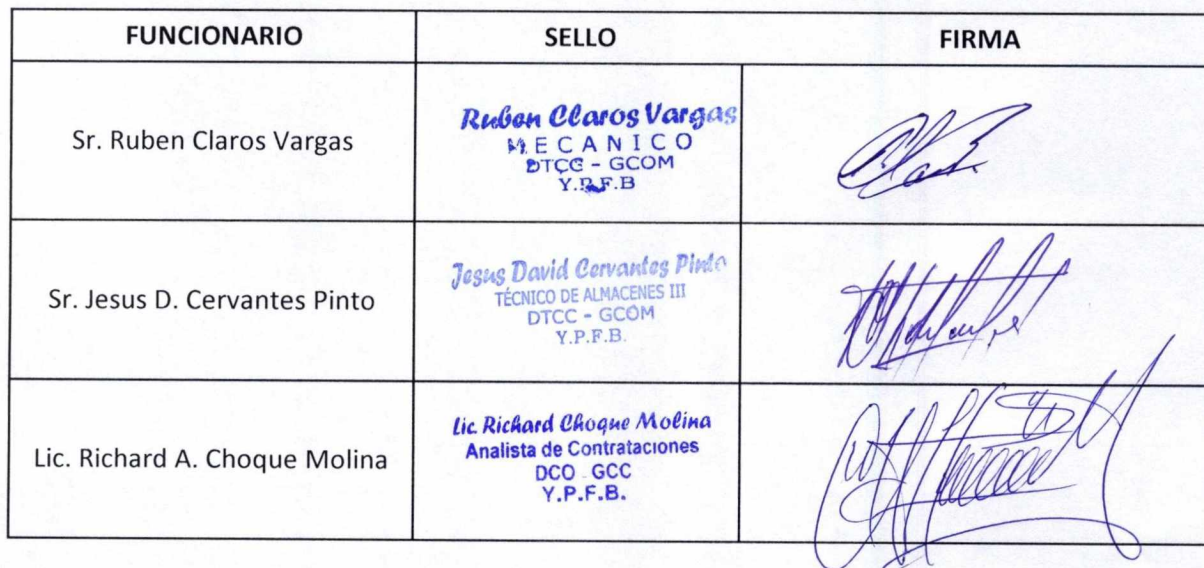 FUNCIONARIO SELLO FIRMA
Sr. Ruben Claros Vargas
Ruben Claros Vargas
MECANICO
DTCC - GCOM
Y.P.F.B
Sr. Jesus D. Cervantes Pinto
Jesus David Cervantes Pinto
TÉCNICO DE ALMACENES III
DTCC - GCOM
Y.P.F.B.
Lic. Richard A. Choque Molina
Lic. Richard Choque Molina
Analista de Contrataciones
DCO - GCC
Y.P.F.B.